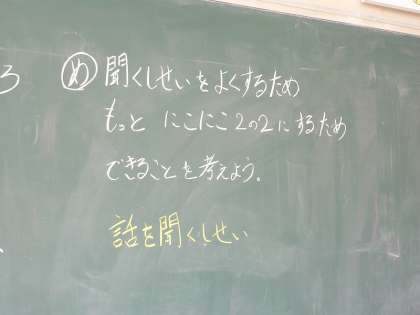 め 聞くしせいをよくするため
もっと にこにこ2の2にするため
できることを考えよう。
話を聞くしせい